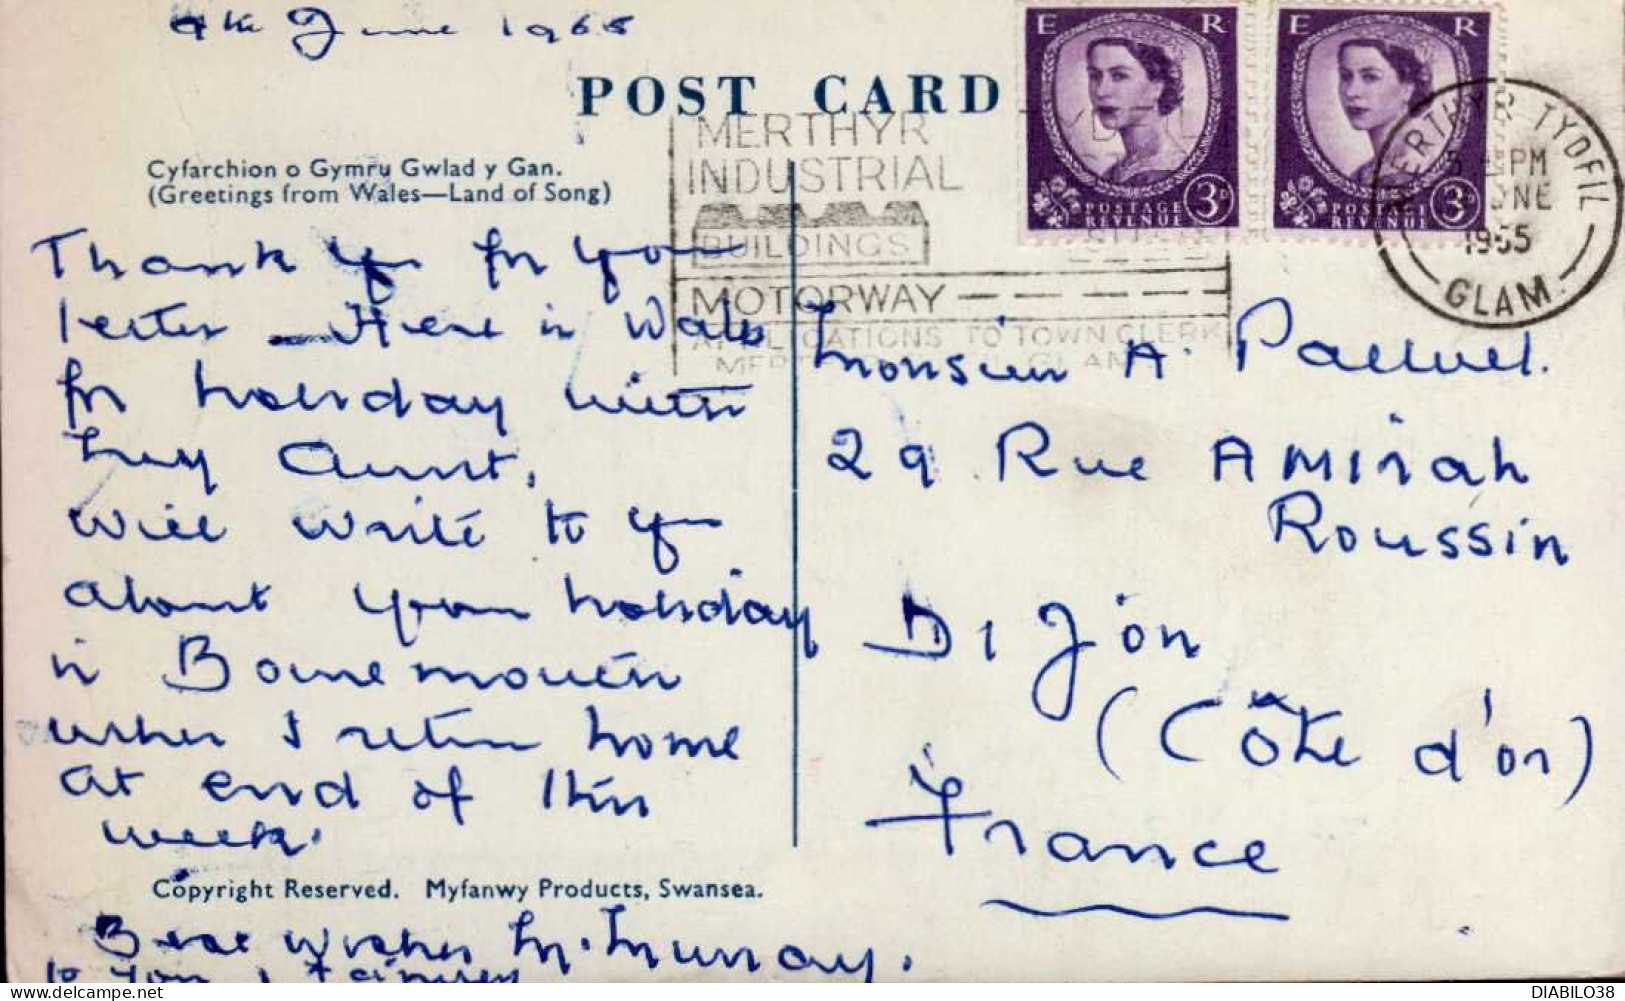 9th June 1965
POST CARD
Cyfarchion o Gymru Gwlad y Gan.
(Greetings from Wales—Land of Song)
Thank you for your
letter – Here in Wales
for holiday with
my Aunt.
will write to you
about your holiday
in Bournemouth
when I return home
at end of this
week.
Copyright Reserved. Myfanwy Products, Swansea.
Best wishes M. Murray.
to you & family
E R
POSTAGE
REVENUE
3D
E R
POSTAGE
REVENUE
3D
MERTHYR TYDFIL
PM
JUNE
1965
GLAM.
MERTHYR
INDUSTRIAL
BUILDINGS
MOTORWAY
APPLICATIONS TO TOWN CLERK
Monsieur A.
29 Rue AMiral
Roussin
Dijon
(Côte d'or)
France
DIABILO38